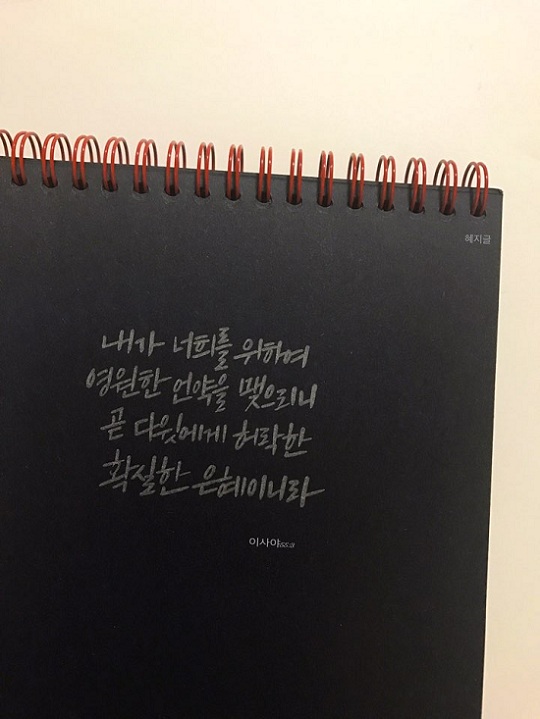 혜지글
내가 너희를 위하여
영원한 언약을 맺으리니
곧 다윗에게 허락한
확실한 은혜이니라
이사야55:3